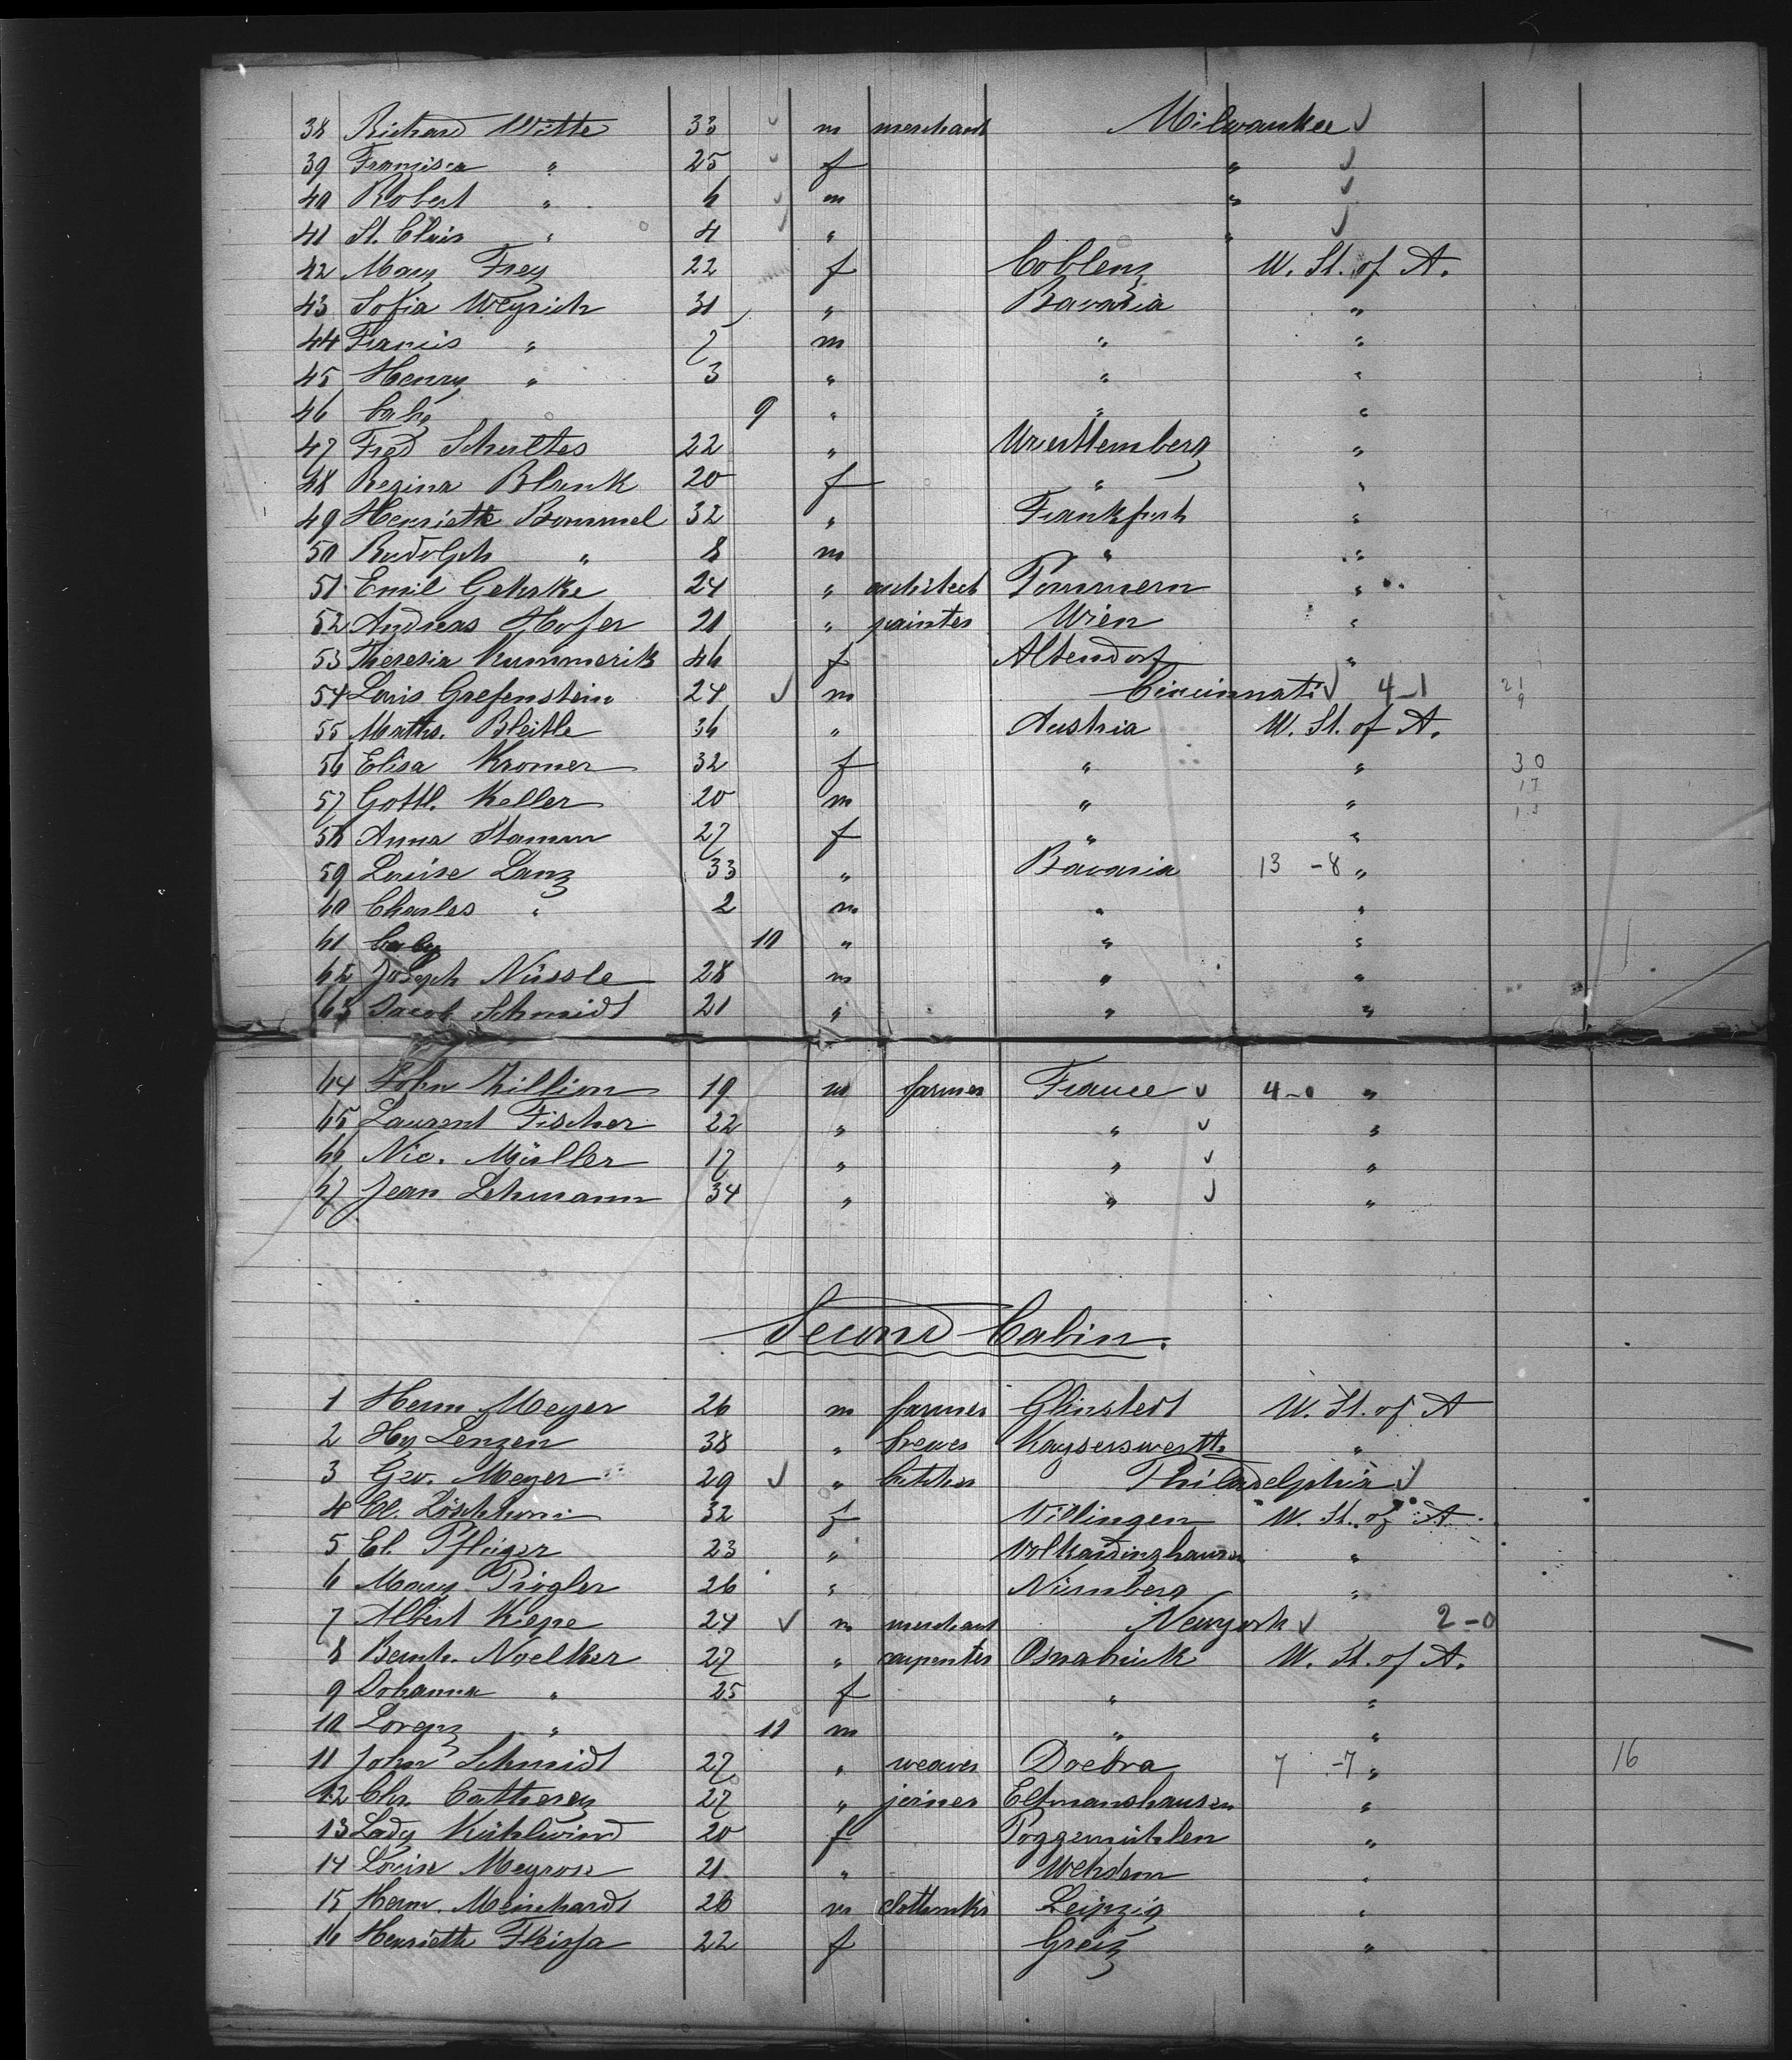 38 Richard Witte 33 m merchant Milwaukee
39 Francisca " 25 f "
40 Robert " 6 m "
41 St. Clair " 4 " "
42 Mary Frey 22 f Coblenz U. St. of A.
43 Sofia Weyrich 31 " Bavaria "
44 Francis " 7 m " "
45 Henry " 3 " " "
46 baby 9 " " "
47 Fred Schultes 22 " Wuerttemberg "
48 Regina Blank 20 f " "
49 Henriette Bommel 32 " Frankfurt "
50 Rudolph " 8 m " "
51 Emil Gehrke 24 " architect Pommern "
52 Andreas Hofer 21 " painter Wien "
53 Theresia Kummerik 46 f Altendorf "
54 Louis Grefenstein 24 m Cincinnati 4-1 21 9
55 Maths. Bleitle 36 " Austria U. St. of A.
56 Elisa Kromer 32 f " " 30
57 Gottl. Keller 20 m " " 17
58 Anna Stamm 27 f " " 13
59 Louise Lanz 33 " Bavaria 13 -8 "
60 Charles " 2 m " "
61 baby 10 " " "
62 Joseph Nüssle 28 m " "
63 Jacob Schmidt 21 " " "
64 John Killion 19 m farmer France 4-0 "
65 Laurent Fischer 22 " " "
66 Nic. Müller 17 " " "
67 Jean Lehmann 34 " " "
Second Cabin.
1 Herm Meyer 26 m farmer Glinstedt U. St. of A
2 Hy Lenzen 38 " brewer Kayserswerth "
3 Geo. Meyer 29 " butcher Philadelphia
4 El. 32 f Villingen U. St. of A.
5 El. Pfleiger 23 " Volkardinghausen "
6 Mary Prögler 26 " Nürnberg "
7 Albert Kiepe 24 m merchant Newyork 2-0
8 Bernh. Noelker 27 " carpenter Osnabrück U. St. of A.
9 Johanna " 25 f " "
10 Lorenz " 11 m " "
11 John Schmidt 27 " weaver Doebra 7 -7 " 16
12 Chr. Catherey 27 " joiner Eltmanshausen "
13 Lady Kühlwind 20 f Poggemühlen "
14 Louise Meyrose 21 " Wehdem "
15 Herm. Meinhardt 26 m Leipzig "
16 Henriette Fleissa 22 f Greiz "